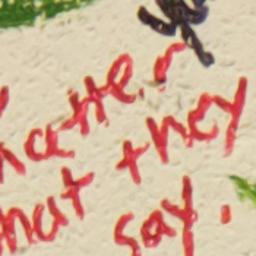 hatter
hat they
say.